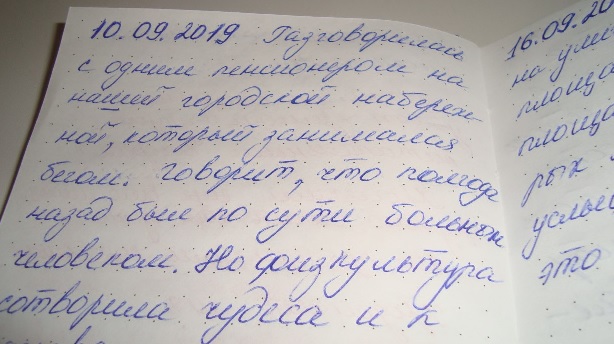 10.09.2019 Разговорилась
с одним пенсионером на
нашей городской набереж
ной, который занимался
бегом. Говорит, что полгода
назад был по сути больном
человеком. Но физкультура
сотворила чудеса и к
16.09.20
на ули
площа
площа
рых
услы
это